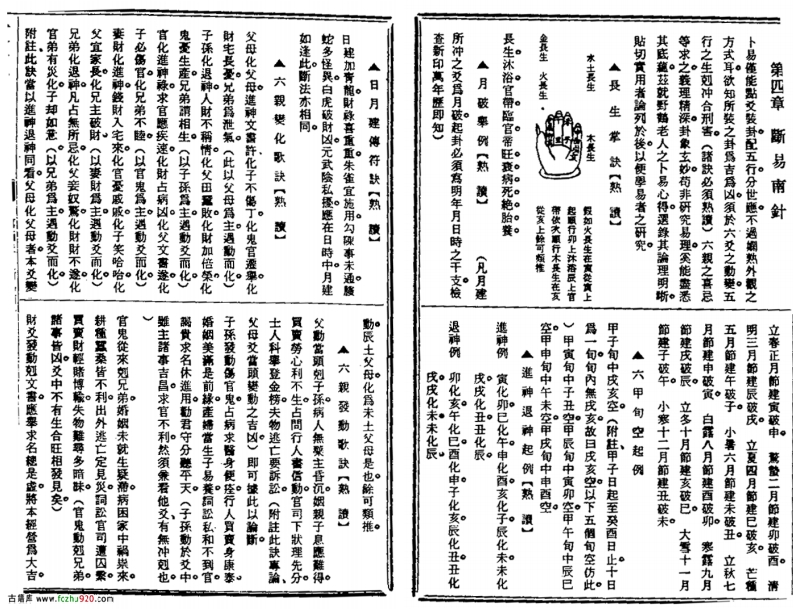 第四章 斷易南針
卜易僅能點爻裝卦配五行分世應不過嫻熟外觀之
方式耳欲知所裝之卦爲吉爲凶須於六爻之動變五
行之生剋冲合刑害(諸訣必須熟讀)六親之喜忌
等求之義理精深卦象玄妙苟非研究易理奚能盡悉
其底蘊茲就野鶴老人之卜易心得選錄其論理明晰
貼切實用者論列於後以便學易者之研究
▲長生掌訣【熟 讀】
水土長生
木長生
金長生
火長生
假如火長生在寅從寅上
起順行卯上沐浴辰上官
帶依次順行木長生在亥
從亥上餘可類推
長生沐浴官帶臨官帝旺衰病死絶胎養
▲月破擧例【熟 讀】 (凡月建
所冲之爻爲月破起卦必須寫明年月日時之干支檢
查新印萬年歷即知)
立春正月節建寅破申 驚蟄二月節建卯破酉 清
明三月節建辰破戌 立夏四月節建巳破亥 芒種
五月節建午破子 小暑六月節建未破丑 立秋七
月節建申破寅 白露八月節建酉破卯 寒露九月
節建戌破辰 立冬十月節建亥破巳 大雪十一月
節建子破午 小寒十二月節建丑破未
▲六甲旬空起例
甲子旬中戌亥空(附註甲子日起至癸酉日止十日
爲一旬旬內無戌亥故曰戌亥空以下五個旬空仿此
)甲寅旬中子丑空甲辰旬中寅卯空甲午旬中辰巳
空甲申旬中午未空甲戌旬中申酉空
▲進神退神起例【熟 讀】
進神例 寅化卯巳化午申化酉亥化子辰化未未化
戌戌化丑丑化辰
退神例 卯化寅午化巳酉化申子化亥辰化丑丑化
戌戌化未未化辰
▲日月建傳符訣【熟 讀】
日建加青龍財祿喜重重朱雀宜施用勾陳事未通螣
蛇多怪異白虎破財凶元武陰私擾應在日時中月建
如逢此斷法亦相同
▲六親變化歌訣【熟 讀】
父母化父母進神文書許化子不傷丁化鬼官遷擧化
財宅長憂兄弟爲泄氣(此以父母爲主遇動而化)
子孫化退神人財不稱情化父田蠶敗化財加倍榮化
鬼憂生產兄弟謂相生(以子孫爲主遇動而化)
官化進神祿求官應疾速化財占病凶化父文書遂化
子必傷官化兄弟不睦(以官鬼爲主遇動而化)
妻財化進神錢財入宅來化官憂戚戚化子笑哈哈化
父宜家長化兄主破財(以妻財爲主遇動而化)
兄弟化退神凡占無所忌化父妾奴驚化財財不遂化
官弟有災化子却如意(以兄弟爲主遇動而化)
附註此訣當以進神退神同看父母化父母者本爻變
動辰土父母化爲未土父母是也餘可類推
▲六親發動歌訣【熟 讀】
父動當頭剋子孫病人無藥主昏沉姻親子息應難得
買賣勞心利不生占問行人書信動官司下狀理先分
士人科擧登金榜失物逃亡要訴訟(附註此訣專論
父母爻當頭變動之吉凶)即可據此以論斷
子孫發動傷官鬼占病求醫身便痊行人買賣身康泰
婚姻美滿是前緣產婦當生子易養詞訟私和不到官
謁貴求名休進用勸君守分聽乎天(子孫動於爻中
雖主諸事吉昌求官不利然須兼看他爻有無冲剋也
)
官鬼從來剋兄弟婚姻未就生疑滯病困家中禍祟來
耕種蠶桑皆不利出外逃亡定見災詞訟官司遭囚繫
買賣財輕賭博輸失物難尋多暗昧(官鬼動剋兄弟
諸事皆凶爻中不有生合旺相發見矣)
財爻發動剋文書應擧求名總是虛將本經營爲大吉
古籍库 www.fczhu920.com